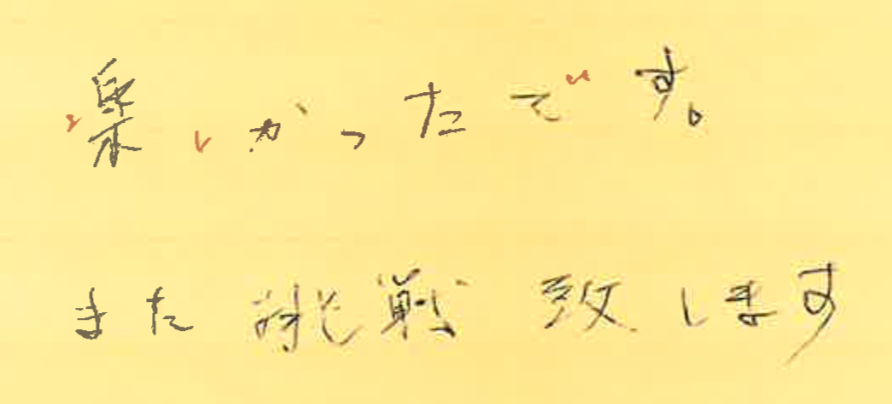 楽しかったです。
また挑戦致します